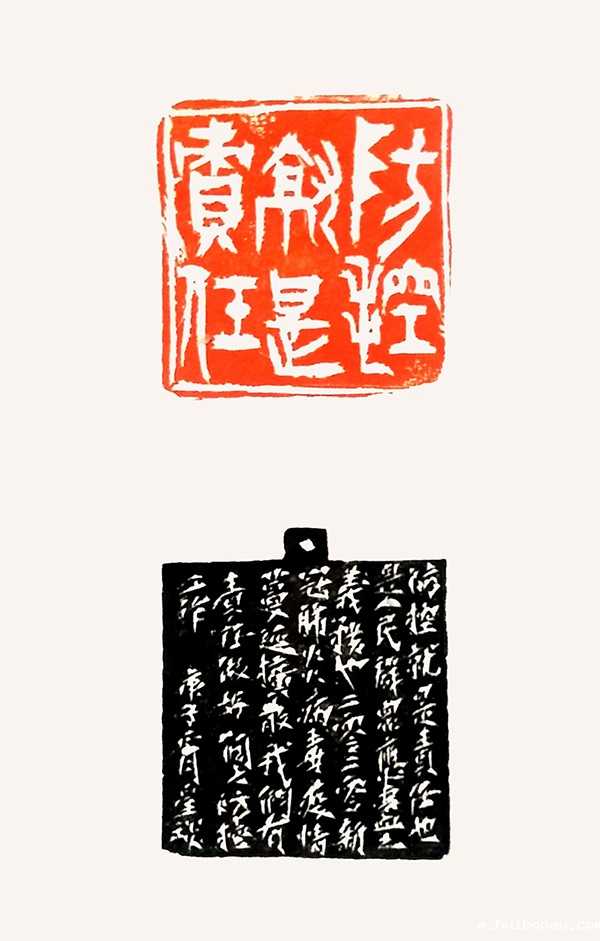 防控
就是
責任
防控就是責任也
是人民群眾應盡之
義務也二零二零新
冠肺炎病毒疫情
蔓延擴散我們有
責任做好個人防控
工作 庚子月星
m.huibopay.com